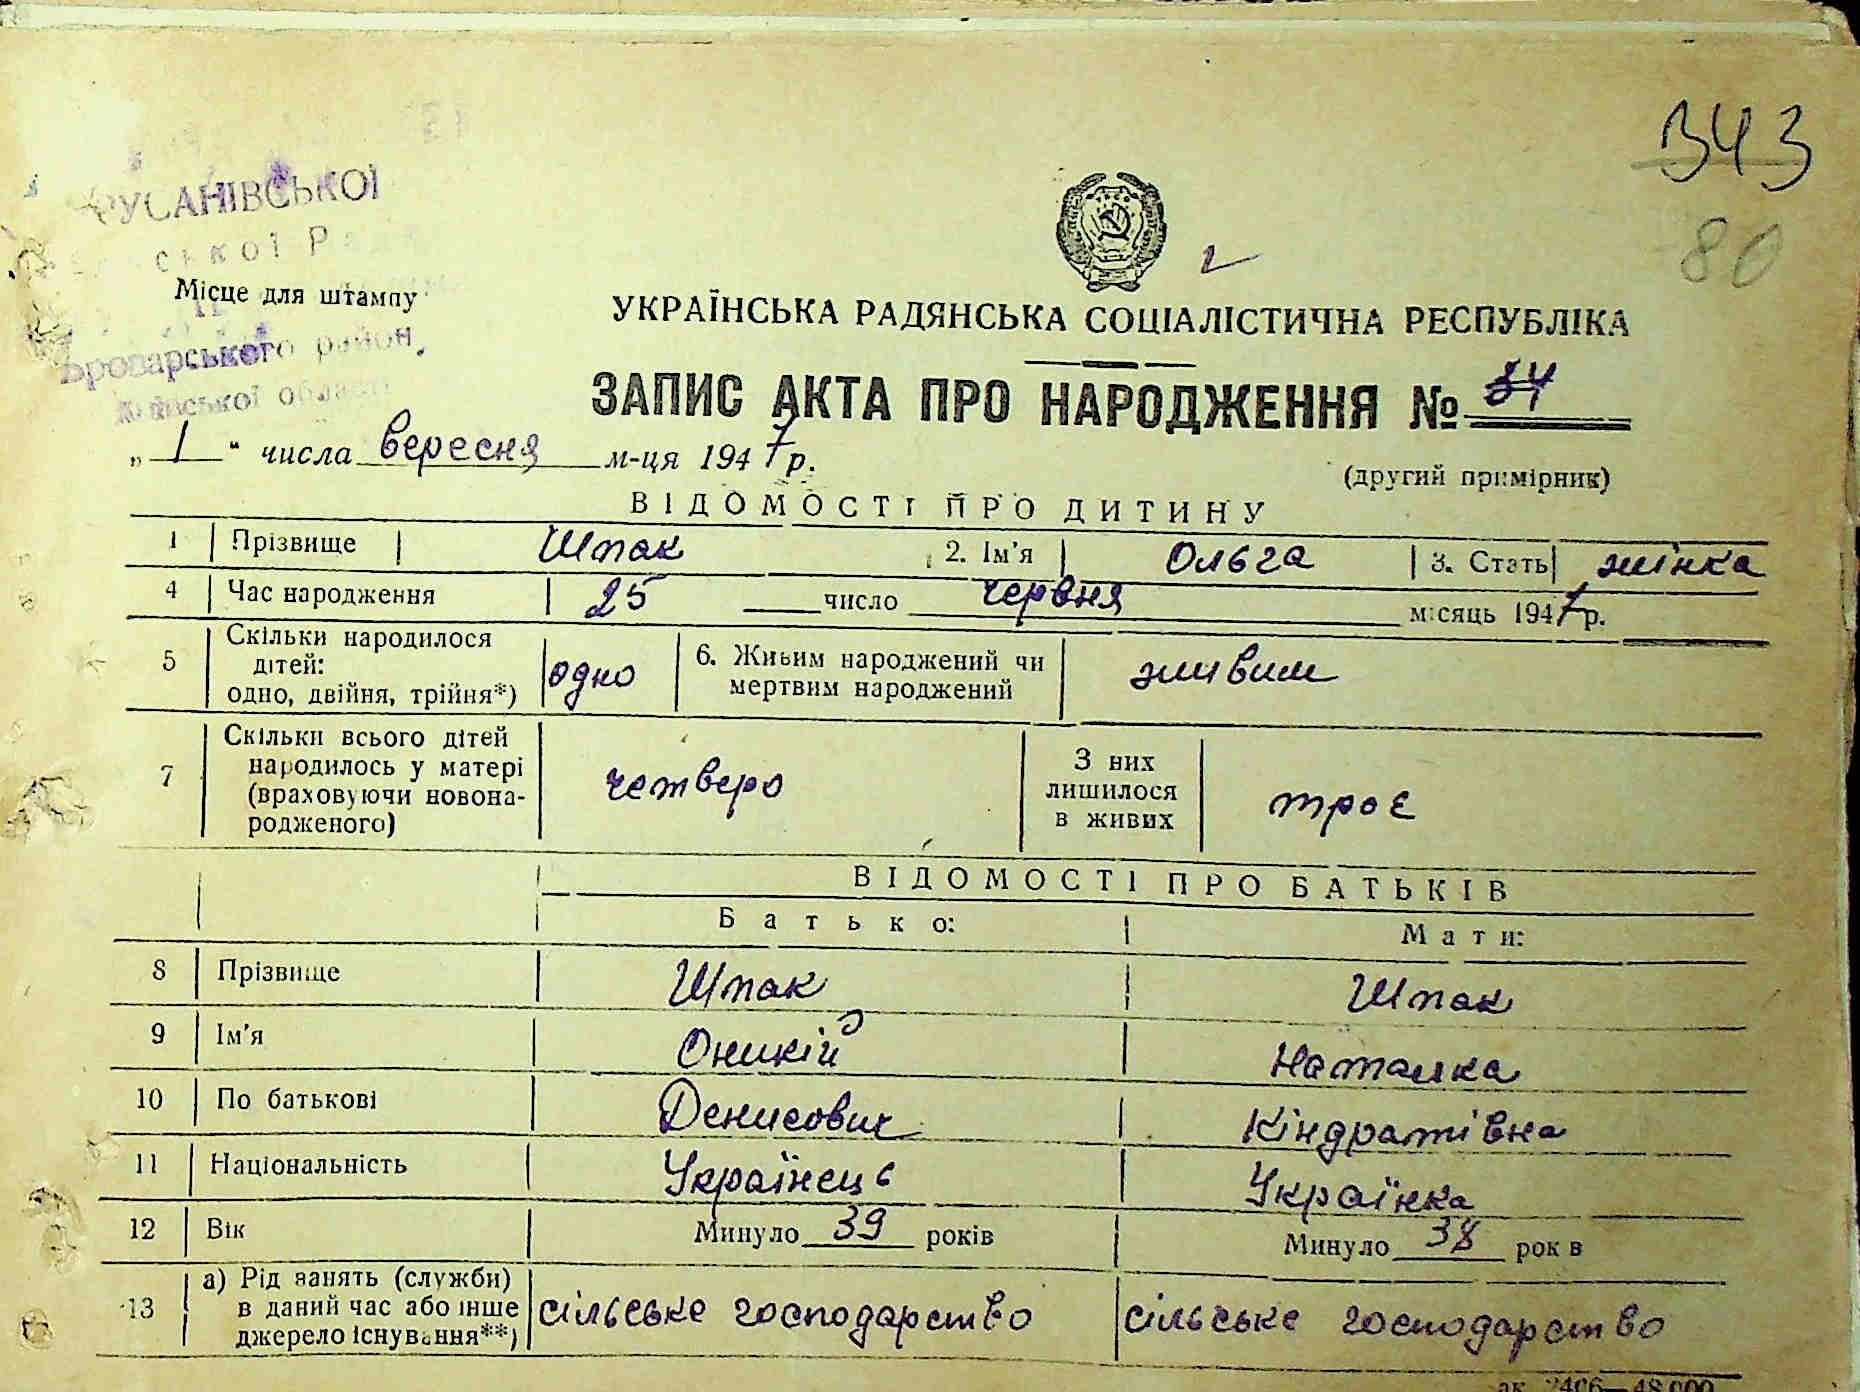 343
80
РУСАНІВСЬКОЇ
Місце для штампу
Броварського район.
Київської області
УКРАЇНСЬКА РАДЯНСЬКА СОЦІАЛІСТИЧНА РЕСПУБЛІКА
ЗАПИС АКТА ПРО НАРОДЖЕННЯ № 34
„ 1 “ числа вересня м-ця 1947 р.
(другий примірник)
ВІДОМОСТІ ПРО ДИТИНУ
1 Прізвище Шпак 2. Ім'я Ольга 3. Стать жінка
4 Час народження 25 число червня місяць 1947 р.
5 Скільки народилося дітей: одно, двійня, трійня*) одно 6. Живим народжений чи мертвим народжений живим
7 Скільки всього дітей народилось у матері (враховуючи новонародженого) четверо З них лишилося в живих троє
ВІДОМОСТІ ПРО БАТЬКІВ
Батько: Мати:
8 Прізвище Шпак Шпак
9 Ім'я Оникій Наталка
10 По батькові Денисович Кіндратівна
11 Національність Українець Українка
12 Вік Минуло 39 років Минуло 38 рок в
13 а) Рід занять (служби) в даний час або інше джерело існування**) сільське господарство сільське господарство